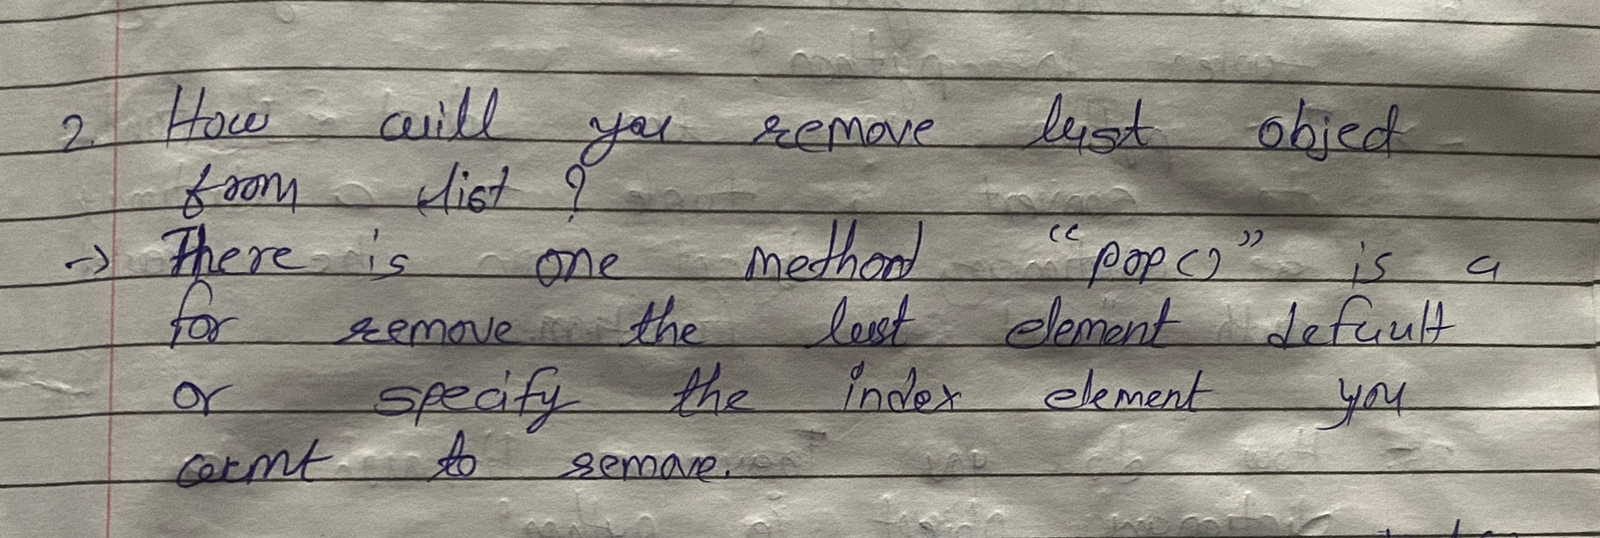 2. How will you remove last object
from list ?
-> There is one method "pop()" is a
for remove the last element default
or specify the index element you
want to remove.